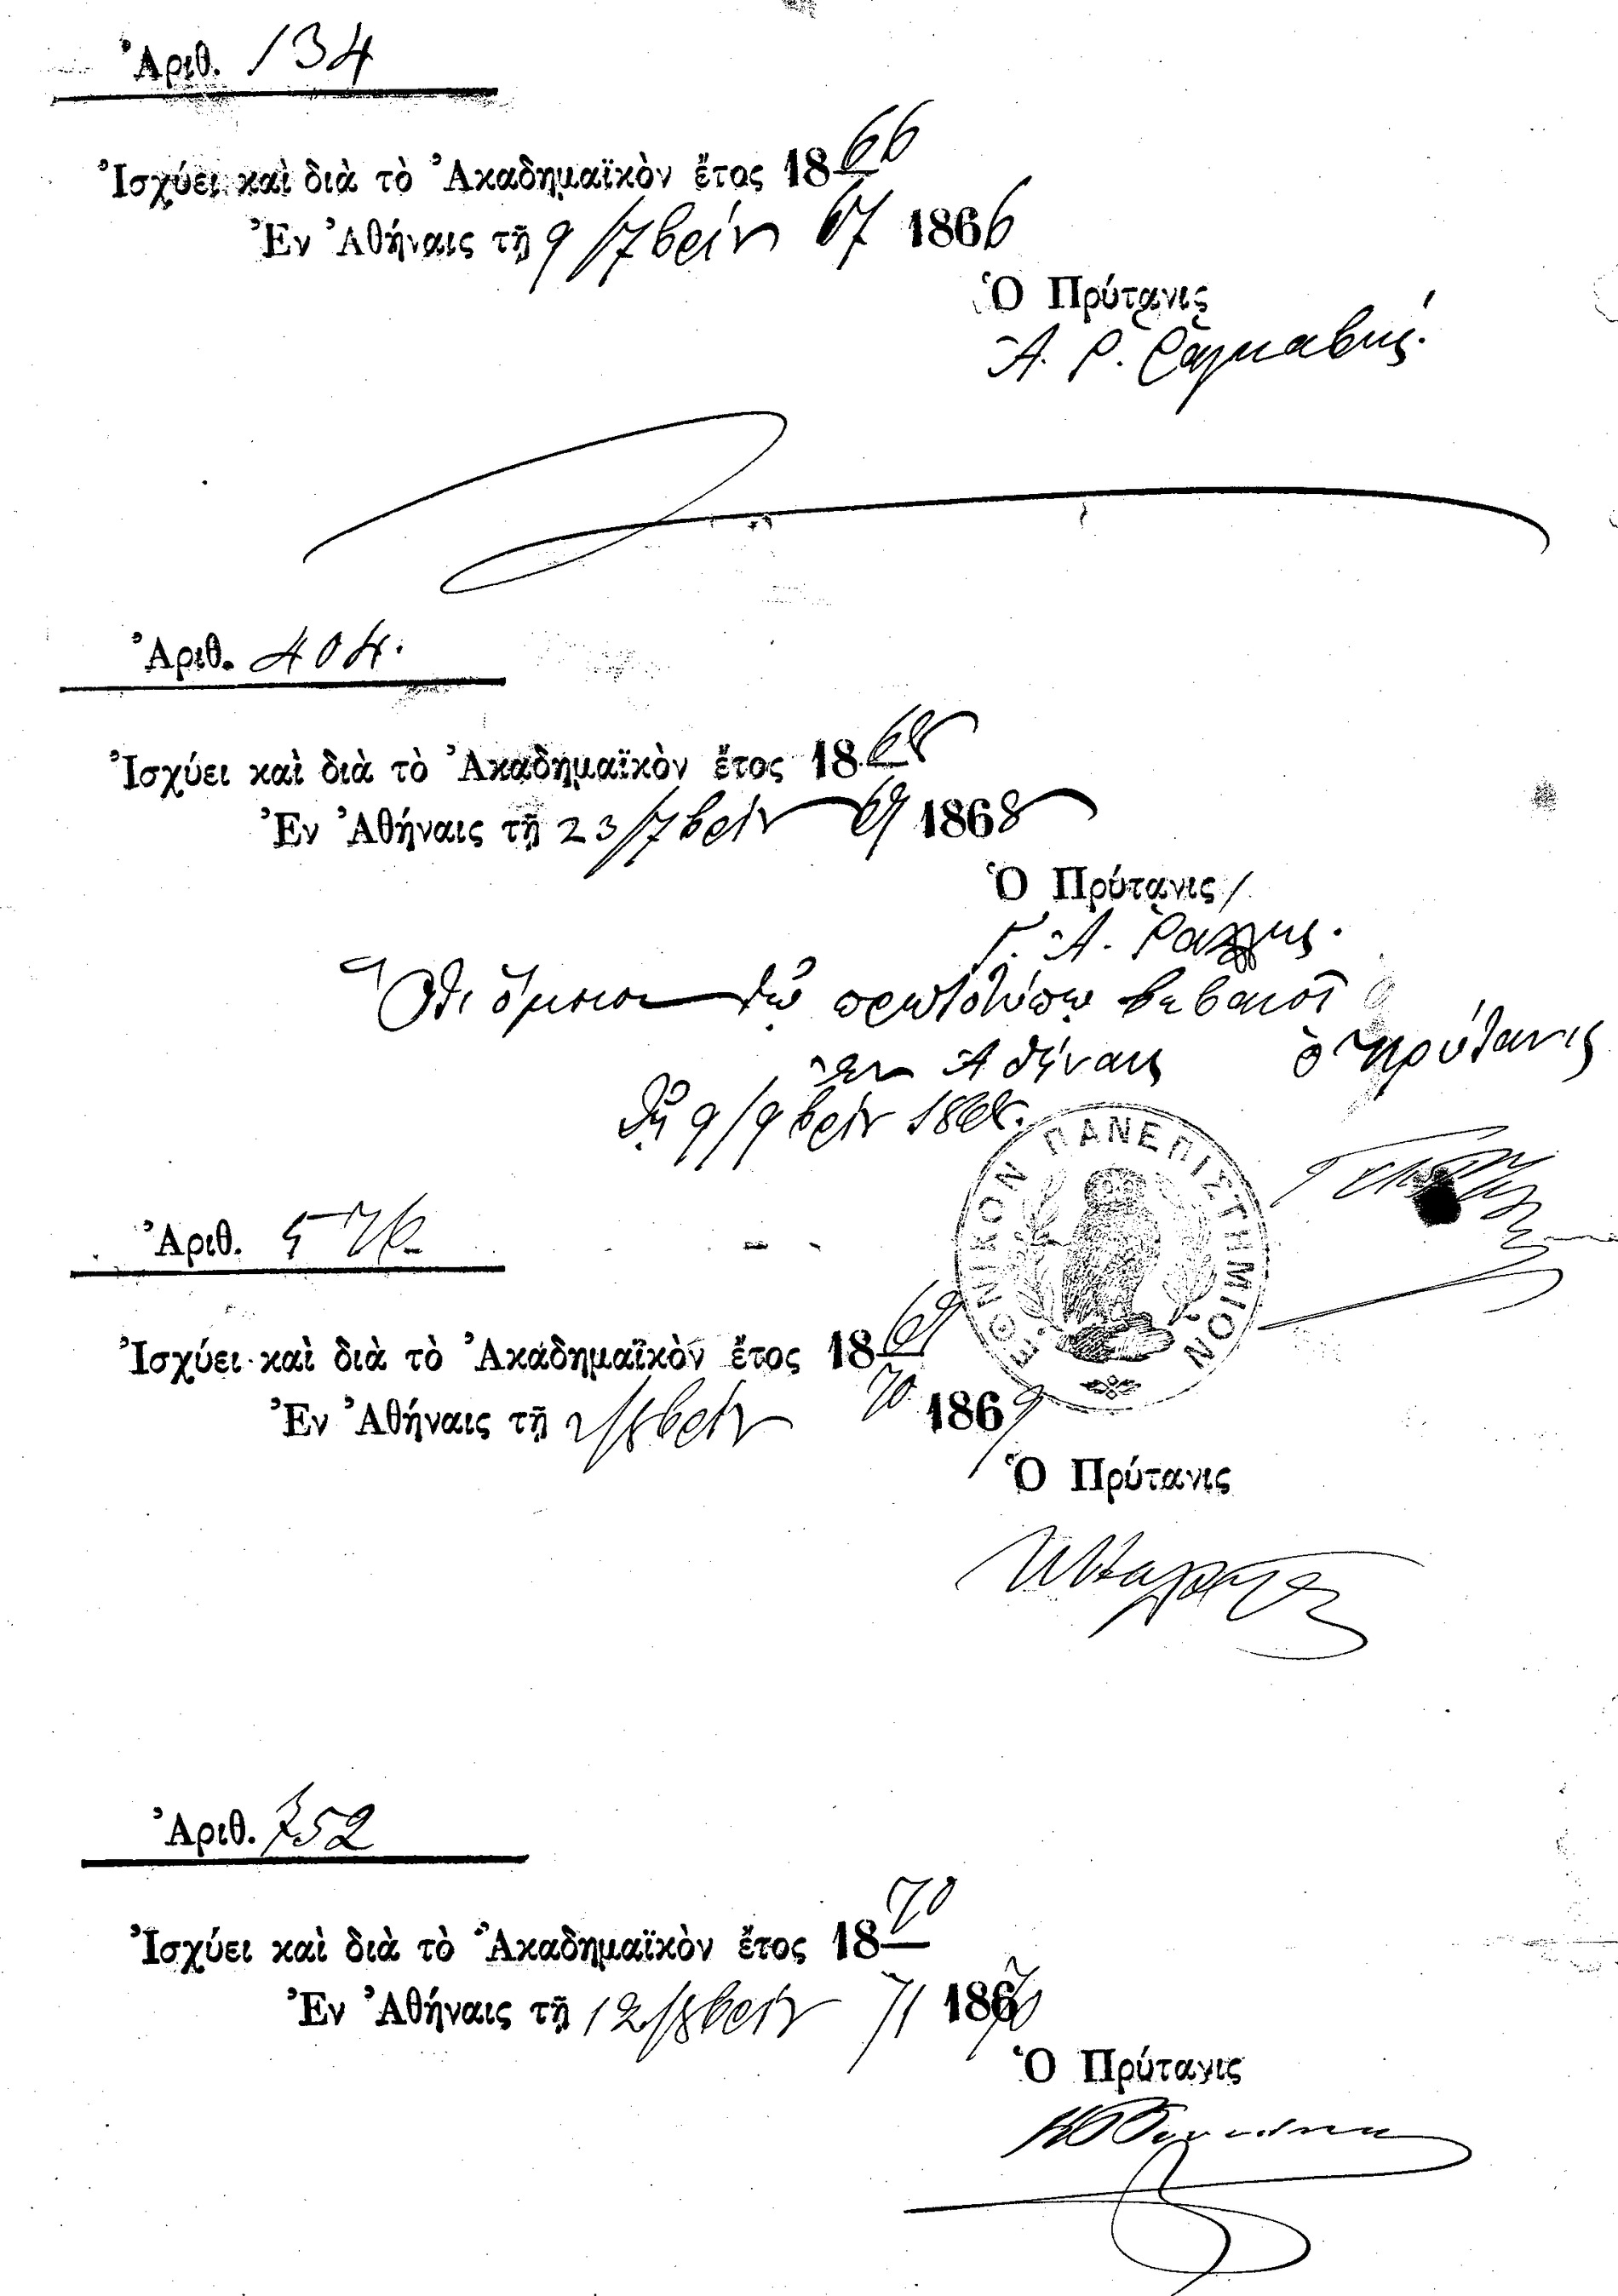 Ἀριθ. 134
Ἰσχύει καὶ διὰ τὸ Ἀκαδημαϊκὸν ἔτος 1866
Ἐν Ἀθήναις τῇ 9/7βρίου 67 1866
Ὁ Πρύτανις
Α. Ρ. Ραγκαβής.
Ἀριθ. 404.
Ἰσχύει καὶ διὰ τὸ Ἀκαδημαϊκὸν ἔτος 1868
Ἐν Ἀθήναις τῇ 23/7βρίου 69 1868
Ὁ Πρύτανις
Γ. Α. Ράλλης.
Ὅτι ὅμοιον τῷ πρωτοτύπῳ βεβαιοῖ
ἐν Ἀθήναις ὁ πρύτανις
τῇ 9/9βρίου 1868.
ΕΘΝΙΚΟΝ ΠΑΝΕΠΙΣΤΗΜΙΟΝ
Ἀριθ. 576
Ἰσχύει καὶ διὰ τὸ Ἀκαδημαϊκὸν ἔτος 1869
Ἐν Ἀθήναις τῇ 2/8βρίου 70 1869
Ὁ Πρύτανις
Ἀριθ. 752
Ἰσχύει καὶ διὰ τὸ Ἀκαδημαϊκὸν ἔτος 1870
Ἐν Ἀθήναις τῇ 12/8βρίου 71 1870
Ὁ Πρύτανις